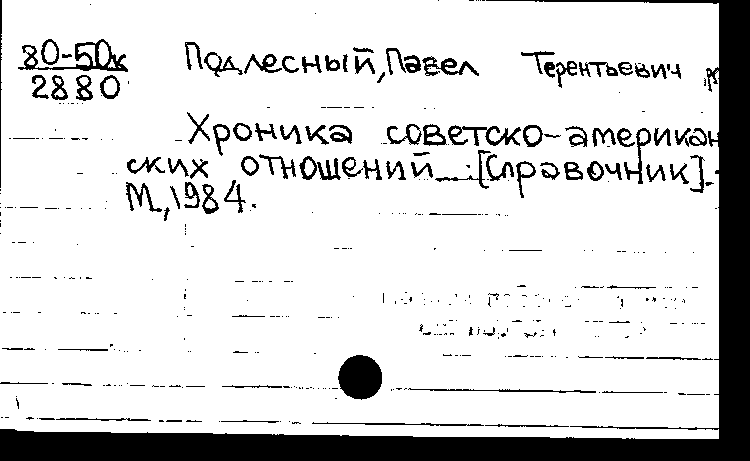 80-50к Подлесный, Павел Терентьевич
2880
Хроника советско-американ
ских отношений : [Справочник]. -
М, 1984.